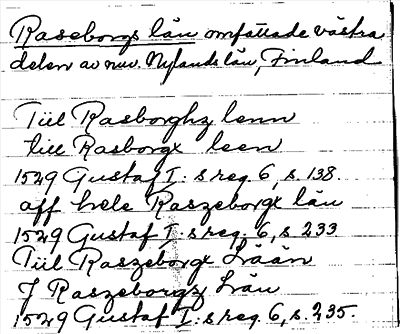 Raseborgs län omfattade västra
delen av nuv. Nylands län, Finland
Tiil Rasborghz lenn
till Rasborgx leen
1529 Gustaf I: s reg. 6, s. 138.
aff hele Raszeborgx län
1529 Gustaf I: s reg. 6, s 233
Tiil Raszeborgx Lään
J Raszeborgz Län
1529 Gustaf I: s reg. 6, s. 235.